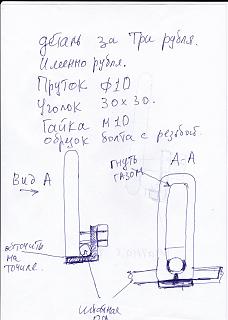 деталь за три рубля.
Именно рубля.
Пруток ф10
Уголок 30х30.
Гайка М10
обрезок болта с резьбой.
Вид А
А-А
ГНУТЬ
ГАЗОМ
заточить
на
точиле.